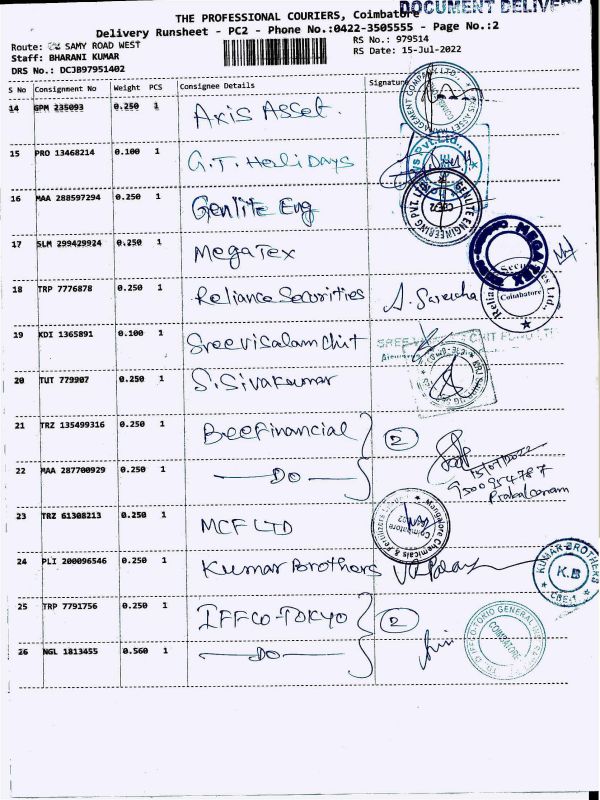 THE PROFESSIONAL COURIERS, Coimbatore
DOCUMENT DELIVERY
Delivery Runsheet - PC2 - Phone No.:0422-3505555 - Page No.:2
Route: SAMY ROAD WEST
RS No.: 979514
Staff: BHARANI KUMAR
RS Date: 15-Jul-2022
DRS No.: DCJB97951402
S No Consignment No Weight PCS Consignee Details Signature
14 GPM 235093 0.250 1 Axis Asset.
15 PRO 13468214 0.100 1 G.T. Holidays
16 MAA 288597294 0.250 1 Genlite Eng
17 SLM 299429924 0.250 1 MegaTex
18 TRP 7776878 0.250 1 Reliance Securities
19 KDI 1365891 0.100 1 Sreevisalam Chit
20 TUT 779907 0.250 1 S. Sivakumar
21 TRZ 135499316 0.250 1 Bee Financial 2
15/07/2022
22 MAA 287700929 0.250 1 DO
23 TRZ 61308213 0.250 1 MCF LTD
24 PLI 200096546 0.250 1 Kumar Brothers
25 TRP 7791756 0.250 1 IFFCO-TOKYO 2
26 NGL 1813455 0.560 1 DO
MEGA TEX
Coimbatore
Mangalore Chemicals & Fertilizers Ltd
Coimbatore
KUMAR BROTHERS
K.B
CBE-1
COIMBATORE